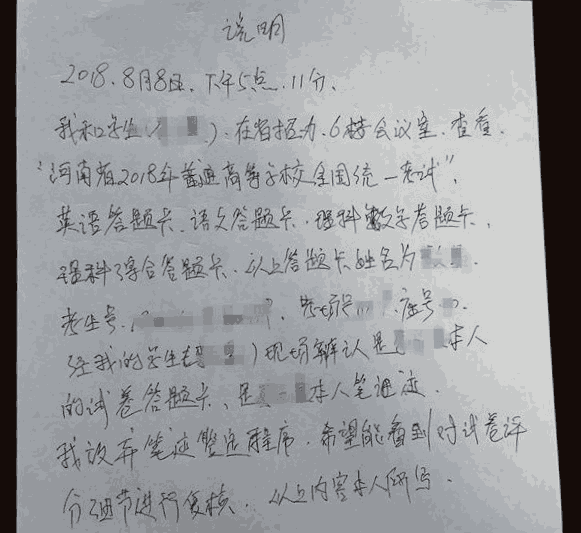 说明
2018.8月8日.下午5点.11分.
我和学生( ).在省招办.6楼会议室.查看.
"河南省2018年普通高等学校全国统一考试".
英语答题卡.语文答题卡.理科数学答题卡.
理科综合答题卡.以上答题卡姓名为
考生号.( .考场号 .座号 .
经我的学生( )现场辨认是 本人
的试卷答题卡、是 本人笔迹.
我放弃笔迹鉴定程序.希望能看到对试卷评
分细节进行复核. 以上内容本人所写.